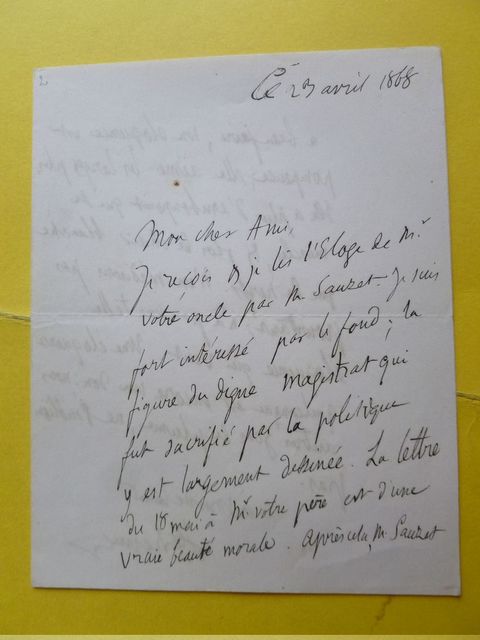 2
Ce 23 avril 1868
Mon cher Ami,
Je reçois & je lis l'Eloge de Mr
votre oncle par M. Sauzet. Je suis
fort intéressé par le fond; la
figure du digne magistrat qui
fut sacrifié par la politique
y est largement dessinée. La lettre
du 18 mai à Mr votre père est d'une
vraie beauté morale. Après cela, M. Sauzet